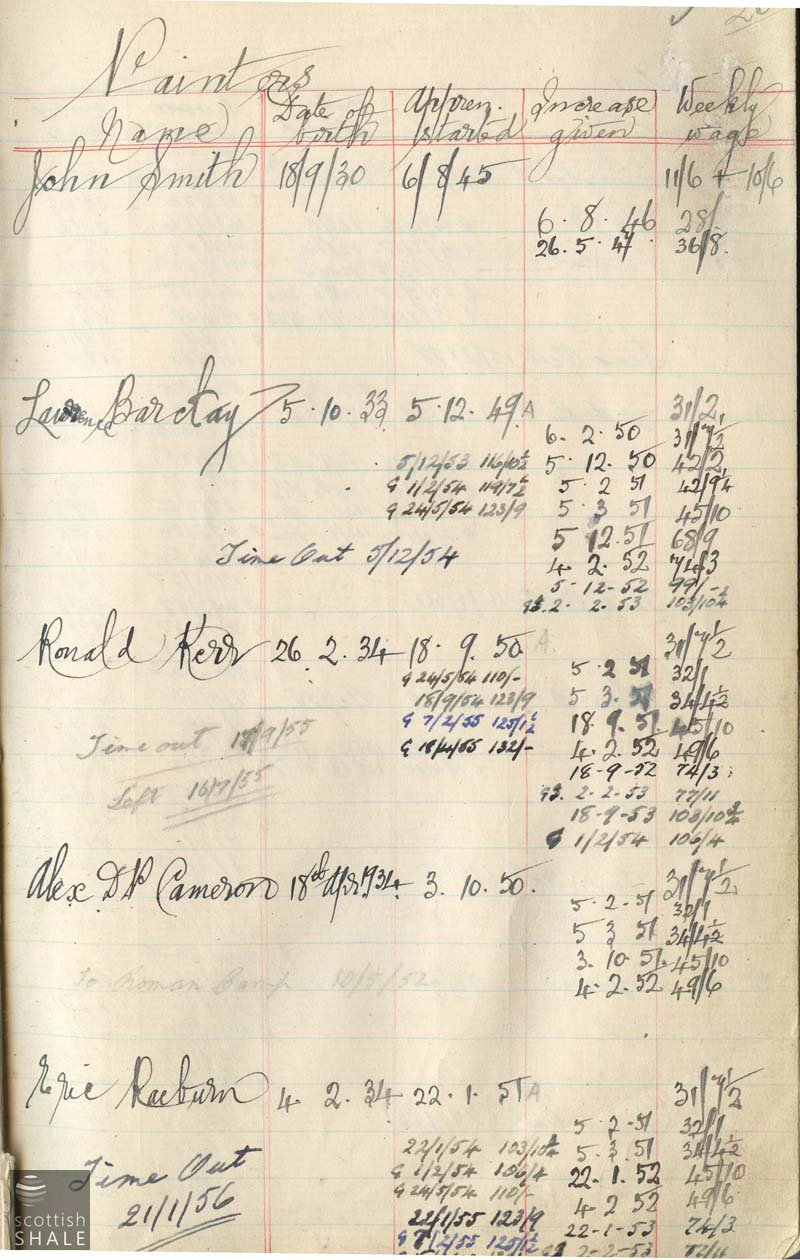 Painters
Name Date of birth Appren. started Increase given Weekly wage
John Smith 18/9/30 6/8/45 11/6 + 10/6
6. 8. 46 28/
26. 5. 47. 36/8.
Barclay 5.10.33 5.12.49 A 31/2,
6. 2. 50 31/7½
5/12/53 116/10½ 5. 12. 50 42/2,
G 1/2/54 119/7½ 5 2 51 42/9¼
G 24/5/54 123/9 5 3 51 45/10
5 12.51 68/9
Time Out 5/12/54 4. 2. 52 74/3
5-12-52 99/-½
2. 2. 53 103/10½
Ronald Kerr 26. 2. 34 18. 9. 50 A. 31/7½
G 24/5/54 110/- 5 2 51 32/1
18/9/54 123/9 5 3. 51 34/4½
G 7/2/55 125/1½ 18. 9. 51 45/10
Time out 17/9/55 G 18/4/55 132/- 4. 2. 52 49/6
18-9-52 74/3
Left 16/7/55 2-2-53 77/11
18-9-53 103/10½
G 1/2/54 106/4
Alex Cameron 18th Apr 1934 3. 10. 50. 31/7½
5. 2. 51 32/1
5 3 51 34/4½
3. 10. 51. 45/10
To Roman Camp 10/5/52 4. 2. 52 49/6
Eric Raeburn 4. 2. 34 22. 1. 51 A 31/7½
5 2-51 32/1
22/1/54 103/10½ 5. 3. 51 34/4½
Time Out G 1/2/54 106/4 22. 1. 52 45/10
21/1/56 G 24/5/54 110/- 4 2 52 49/6
22/1/55 123/9 22-1-53 74/3
G 7/2/55 125/1½ 2-2-53 77/11
scottish
SHALE